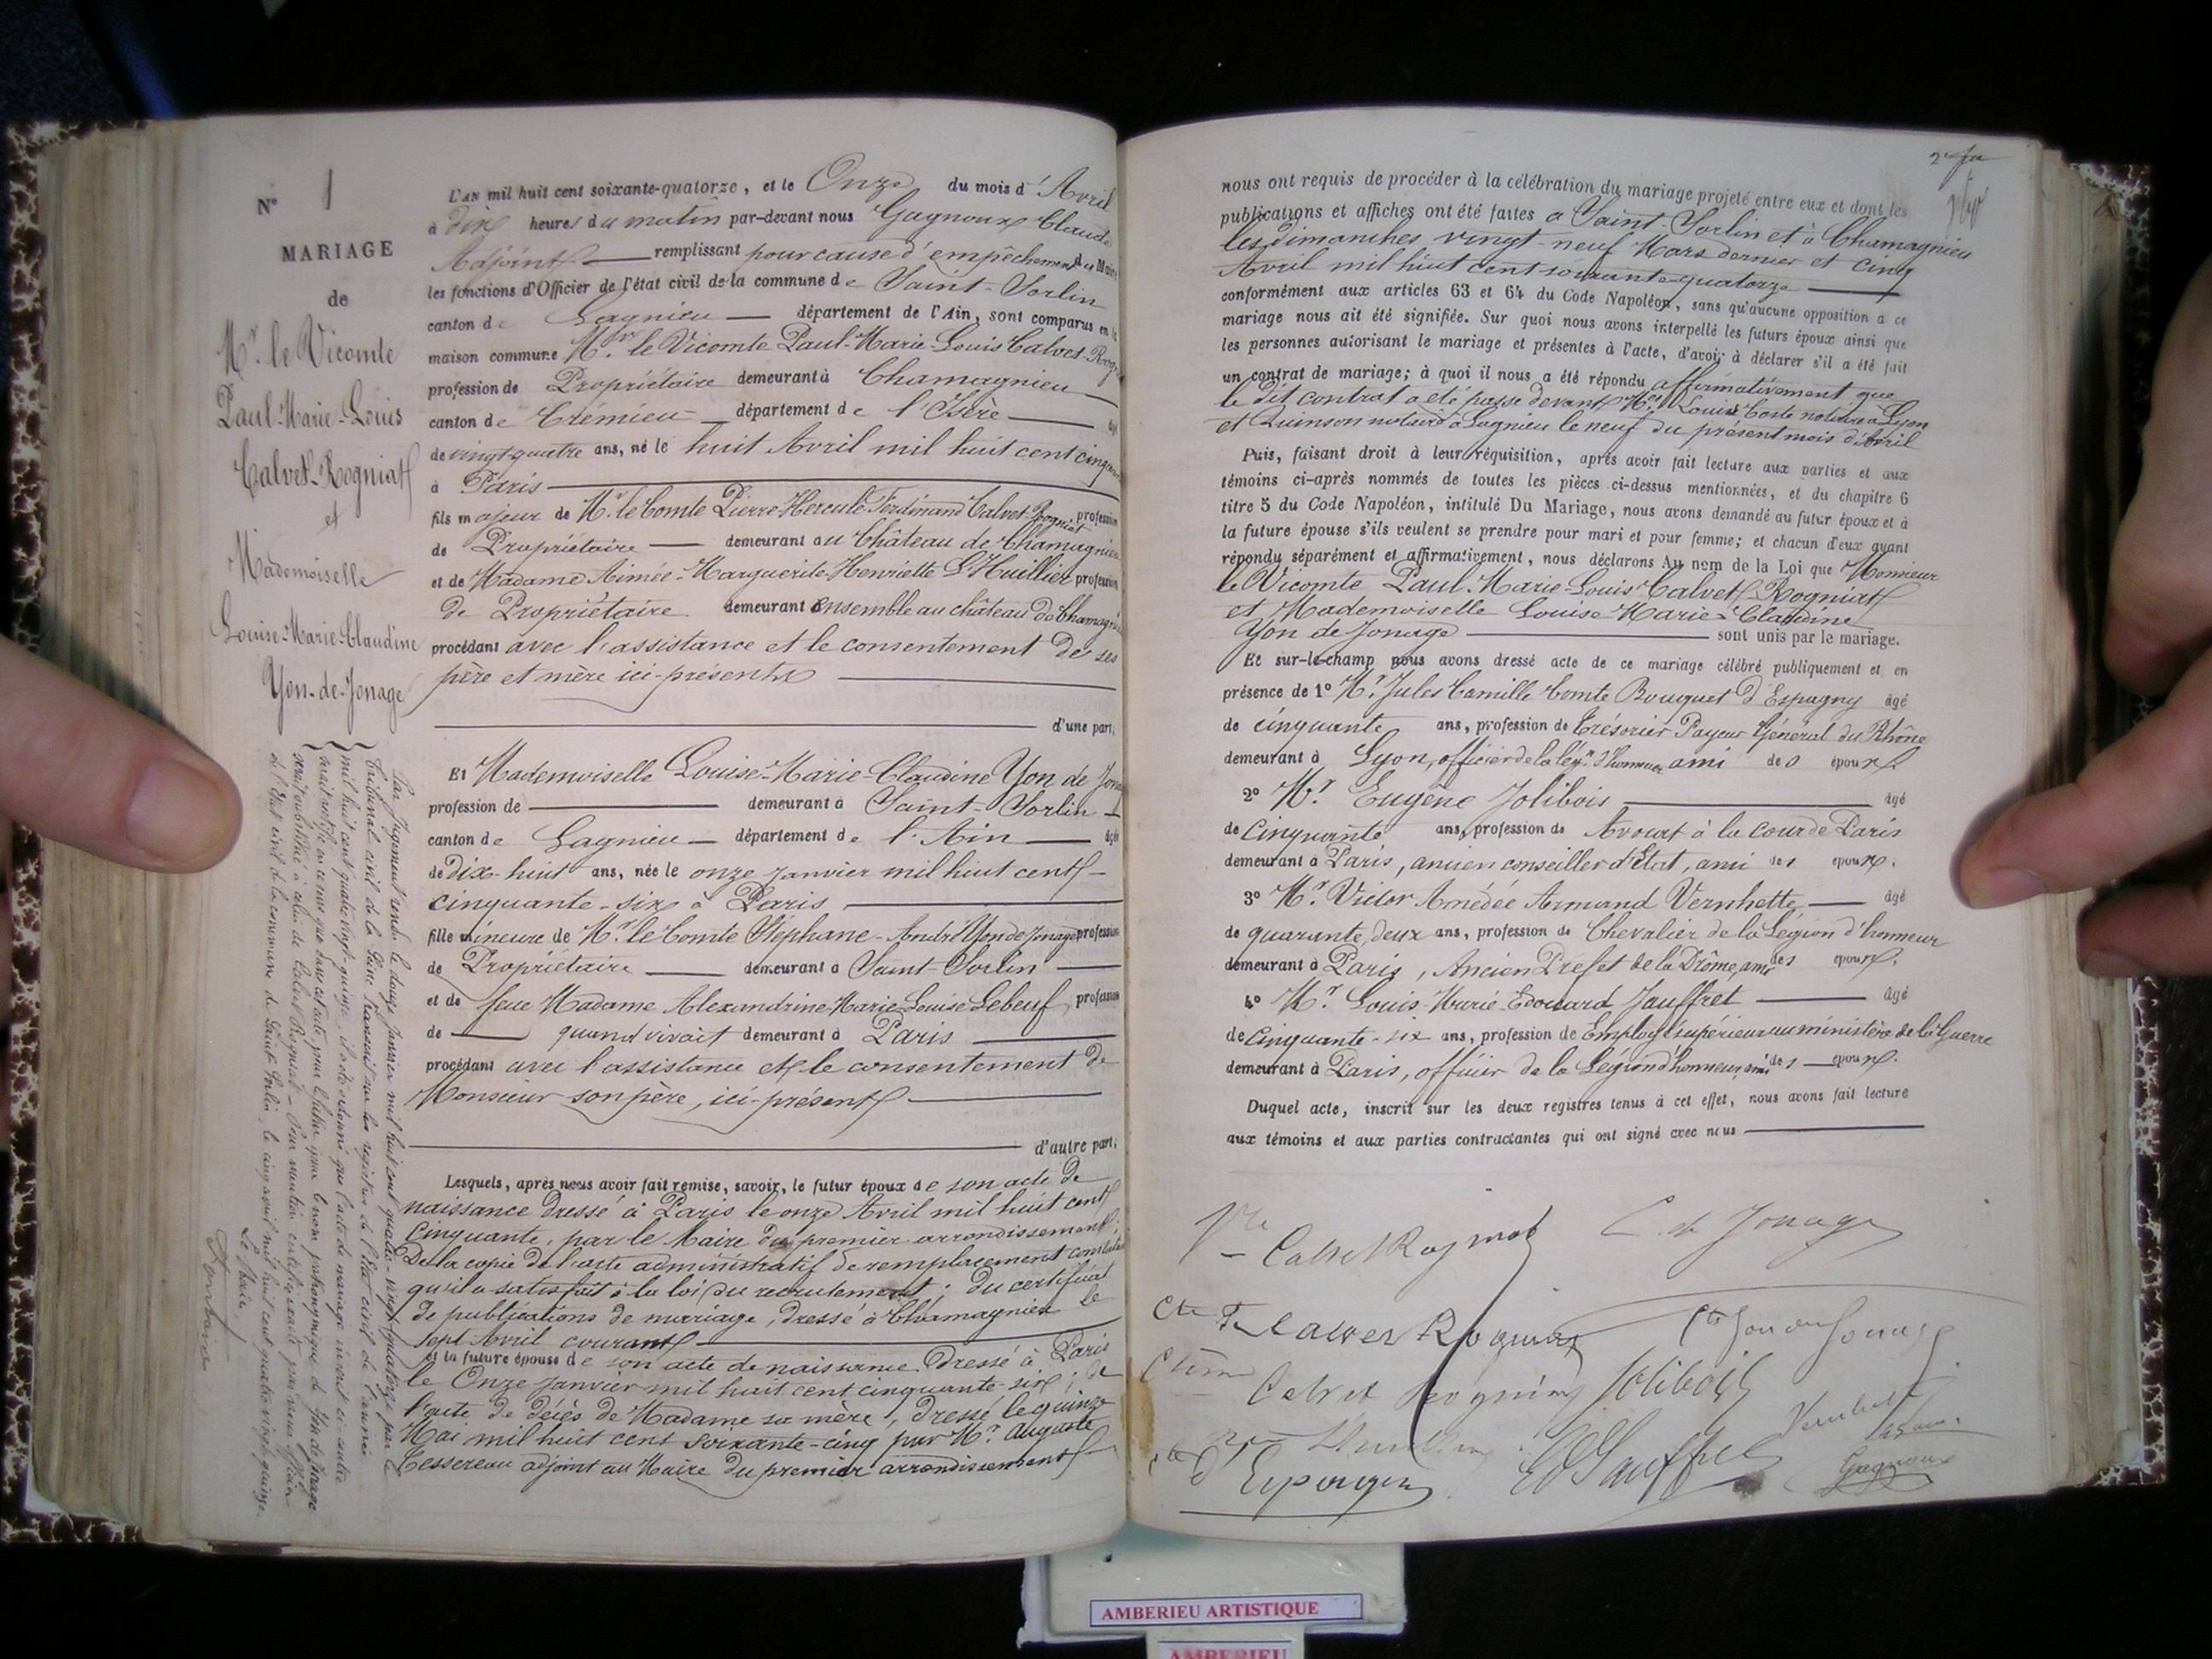 N° 1
MARIAGE
de
Mr. le Vicomte
Paul-Marie-Louis
Calvet-Rogniat
et
Mademoiselle
Louise-Marie Claudine
Yon-de-Jonage
Par Jugement rendu le douze Janvier mil huit cent quatre-vingt quatorze par le
Tribunal civil de la Seine transcrit sur les registres de l'Etat civil de l'année
mil huit cent quatre vingt quinze, il a été ordonné que l'acte de mariage inscrit ci-contre
serait rectifié en ce sens que
serait substitué à celui de Calvet Rogniat - Pour mention
de l'Etat civil de la commune de Saint Sorlin, le cinq avril mil huit cent quatre vingt quinze.
Le Maire,
L'AN mil huit cent soixante-quatorze, et le Onze du mois d'Avril
à dix heures du matin par-devant nous Gagnoux Claude
Adjoint remplissant pour cause d'empêchement du Maire
les fonctions d'Officier de l'état civil de la commune de Saint-Sorlin
canton de Lagnieu département de l'Ain, sont comparus en la
maison commune Mr. le Vicomte Paul-Marie-Louis Calvet-Rogn
profession de Propriétaire demeurant à Chamagnieu
canton de Crémieu département de l'Isère âgé
de vingt-quatre ans, né le huit Avril mil huit cent cinquante
à Paris
fils majeur de Mr. le Comte Pierre Hercule Ferdinand Calvet-Rogniat profession
de Propriétaire demeurant au Château de Chamagnieu
et de Madame Aimée-Marguerite-Henriette L'Huillier profession
de Propriétaire demeurant ensemble au château de Chamagnieu
procédant avec l'assistance et le consentement de ses
père et mère ici-présents
d'une part;
Et Mademoiselle Louise-Marie-Claudine Yon de Jona
profession de demeurant à Saint-Sorlin
canton de Lagnieu département de l'Ain âgée
de dix-huit ans, née le onze janvier mil huit cent
cinquante-six à Paris
fille mineure de Mr. le Comte Stéphane-André Yon de Jonage profession
de Propriétaire demeurant à Saint-Sorlin
et de feue Madame Alexandrine Marie Louise Lebeuf profession
de quand vivait demeurant à Paris
procédant avec l'assistance et le consentement de
Monsieur son père, ici-présent
d'autre part;
Lesquels, après nous avoir fait remise, savoir, le futur époux de son acte de
naissance dressé à Paris le onze Avril mil huit cent
cinquante, par le Maire du premier arrondissement;
De la copie de l'acte administratif de remplacement constatant
qu'il a satisfait à la loi du recrutement; du certificat
de publications de mariage, dressé à Chamagnieu le
sept Avril courant
et la future épouse de son acte de naissance dressé à Paris
le Onze janvier mil huit cent cinquante-six; de
l'acte de décès de Madame sa mère, dressé le quinze
Mai mil huit cent soixante-cinq par Mr. Auguste
Tessereau adjoint au Maire du premier arrondissement
nous ont requis de procéder à la célébration du mariage projeté entre eux et dont les
publications et affiches ont été faites à Saint-Sorlin et à Chamagnieu
les Dimanches vingt-neuf Mars dernier et cinq
Avril mil huit cent soixante-quatorze
conformément aux articles 63 et 64 du Code Napoléon, sans qu'aucune opposition à ce
mariage nous ait été signifiée. Sur quoi nous avons interpellé les futurs époux ainsi que
les personnes autorisant le mariage et présentes à l'acte, d'avoir à déclarer s'il a été fait
un contrat de mariage; à quoi il nous a été répondu affirmativement que
le dit contrat a été passé devant Me Louis Coste notaire à Lyon
et Quinson notaire à Lagnieu le neuf du présent mois d'Avril
Puis, faisant droit à leur réquisition, après avoir fait lecture aux parties et aux
témoins ci-après nommés de toutes les pièces ci-dessus mentionnées, et du chapitre 6
titre 5 du Code Napoléon, intitulé Du Mariage, nous avons demandé au futur époux et à
la future épouse s'ils veulent se prendre pour mari et pour femme; et chacun d'eux ayant
répondu séparément et affirmativement, nous déclarons Au nom de la Loi que Monsieur
le Vicomte Paul-Marie-Louis Calvet-Rogniat
et Mademoiselle Louise-Marie-Claudine
Yon de Jonage sont unis par le mariage.
Et sur-le-champ nous avons dressé acte de ce mariage célébré publiquement et en
présence de 1° Mr. Jules Camille Comte Bouquet d'Espagny âgé
de cinquante ans, profession de Trésorier Payeur Général du Rhône
demeurant à Lyon, officier de la légn d'honneur ami des époux
2° Mr. Eugène Jolibois âgé
de Cinquante ans, profession de Avocat à la cour de Paris
demeurant à Paris, ancien conseiller d'Etat, ami des époux.
3° Mr. Victor Amédée Armand Vernhette âgé
de quarante deux ans, profession de Chevalier de la Légion d'honneur
demeurant à Paris, Ancien Préfet de la Drôme, ami des époux.
4° Mr. Louis-Marie-Edouard Jauffret âgé
de cinquante-six ans, profession de Employé supérieur au ministère de la Guerre
demeurant à Paris, officier de la Légion d'honneur, ami des époux.
Duquel acte, inscrit sur les deux registres tenus à cet effet, nous avons fait lecture
aux témoins et aux parties contractantes qui ont signé avec nous
Vte Calvet Rogniat C. de Jonage
Cte F. Calvet Rogniat Cte Yon de Jonage
Ctesse Calvet Rogniat Jolibois
Cte d'Espagny Ed Jauffret Gagnoux
AMBERIEU ARTISTIQUE
AMBERIEU